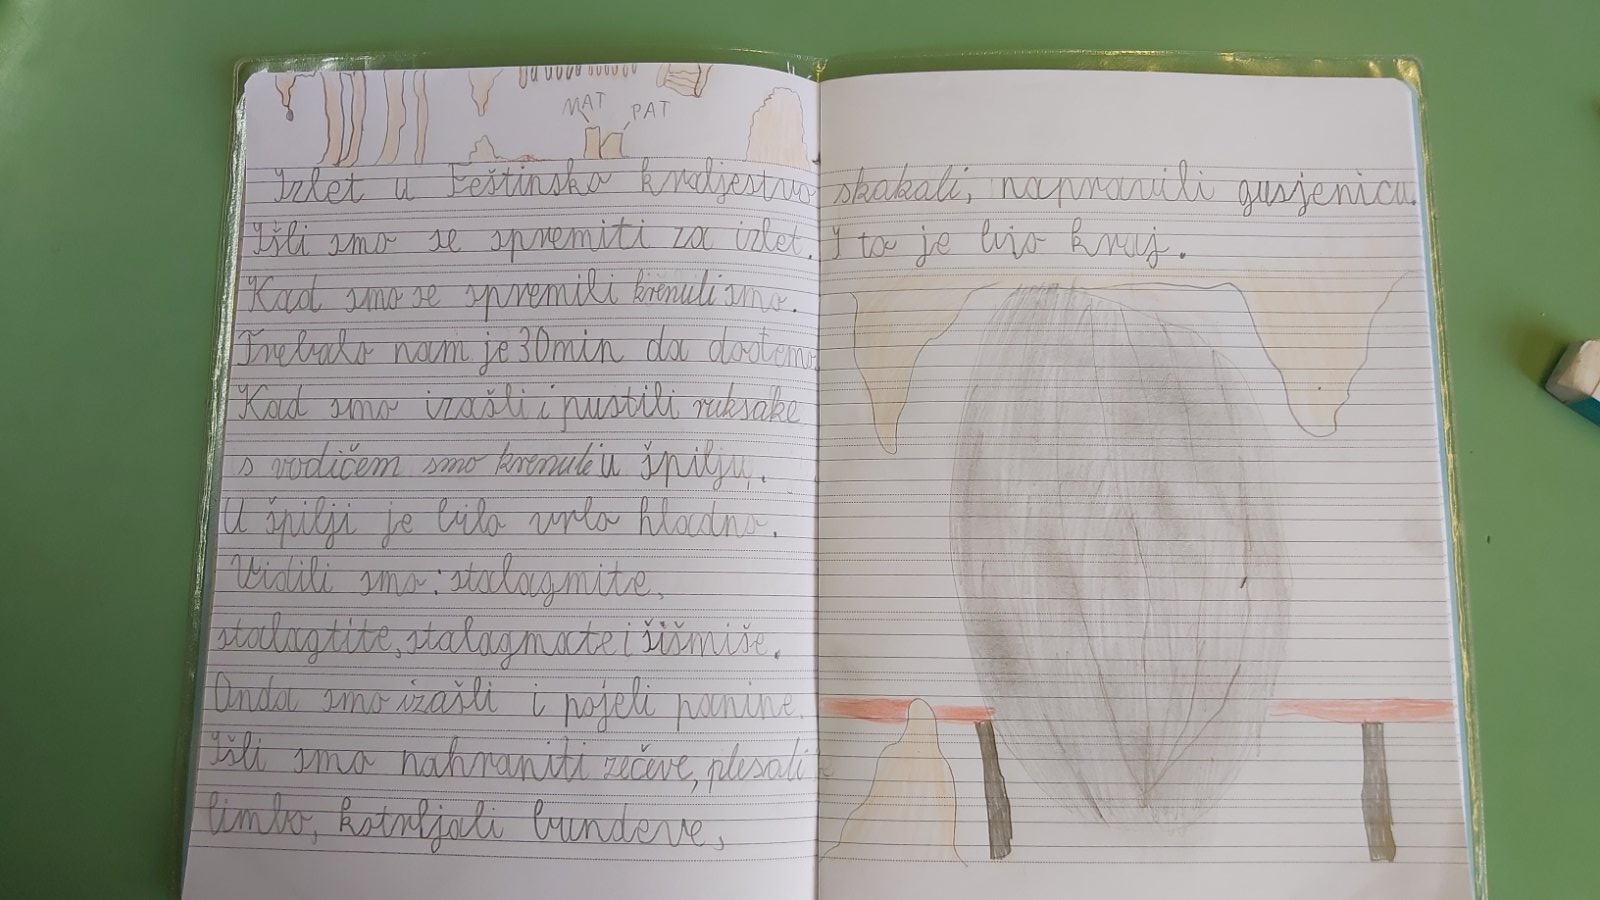 MAT PAT
Izlet u Feštinsko kraljestvo
Išli smo se spremiti za izlet.
Kad smo se spremili krenuli smo.
Trebalo nam je 30min da dođemo.
Kad smo izašli i pustili ruksake
s vodičem smo krenuli u špilju.
U špilji je bilo vrlo hladno.
Vidili smo: stalagmite,
stalagtite, stalagmate i šišmiše.
Onda smo izašli i pojeli panine.
Išli smo nahraniti zečeve, plesali
limbo, kotrljali bundeve,
skakali, napravili gusjenicu.
I to je bio kraj.